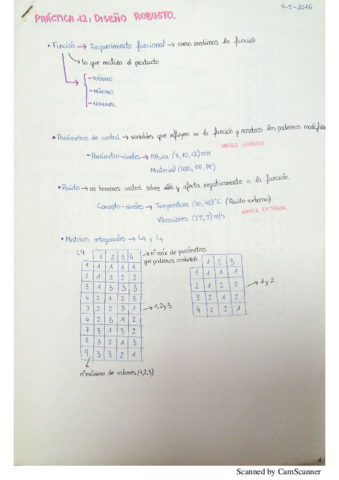 4-5-2016
PRÁCTICA 12: DISEÑO ROBUSTO.
• Función → Requerimiento funcional → como medimos la función
↳ lo que realiza el producto
- MÍNIMO
- MÁXIMO
- NOMINAL
• Parámetros de control → variables que influyen en la función y nosotros los podemos modificar
MATRIZ INTERIOR
- Parámetro-niveles → Altura (8, 10, 12) mm
Material (ABS, PP, PC)
• Ruido → no tenemos control sobre ello y afecta negativamente a la función.
Concepto-niveles → Temperatura (20, 40)°C (Ruido externo)
MATRIZ EXTERIOR
Vibraciones m/s
• Matrices ortogonales → L9 y L4
L9 1 2 3 4
→ nº máx de parámetros que podemos controlar
1 1 1 1 1
2 1 2 2 2
3 1 3 3 3
4 2 1 2 3
5 2 2 3 1
6 2 3 1 2
7 3 1 3 2
8 3 2 1 3
9 3 3 2 1
→ 1, 2 y 3
nº máximo de valores (1,2,3)
1 2 3
1 1 1 1
2 1 2 2
3 2 1 2
4 2 2 1
→ 1 y 2
Scanned by CamScanner